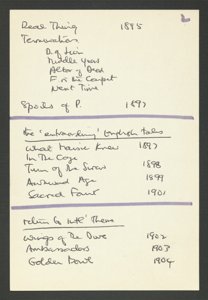 2
Real Thing 1895
Terminations
D. of Lion
Middle Years
Altar of Dead
F. in the Carpet
Next Time
Spoils of P. 1897
The "astonishing" English tales
What Maisie Knew 1897
In The Cage
Turn of the Screw 1898
Awkward Age 1899
Sacred Fount 1901
return to Int'l Theme
Wings of the Dove 1902
Ambassadors 1903
Golden Bowl 1904